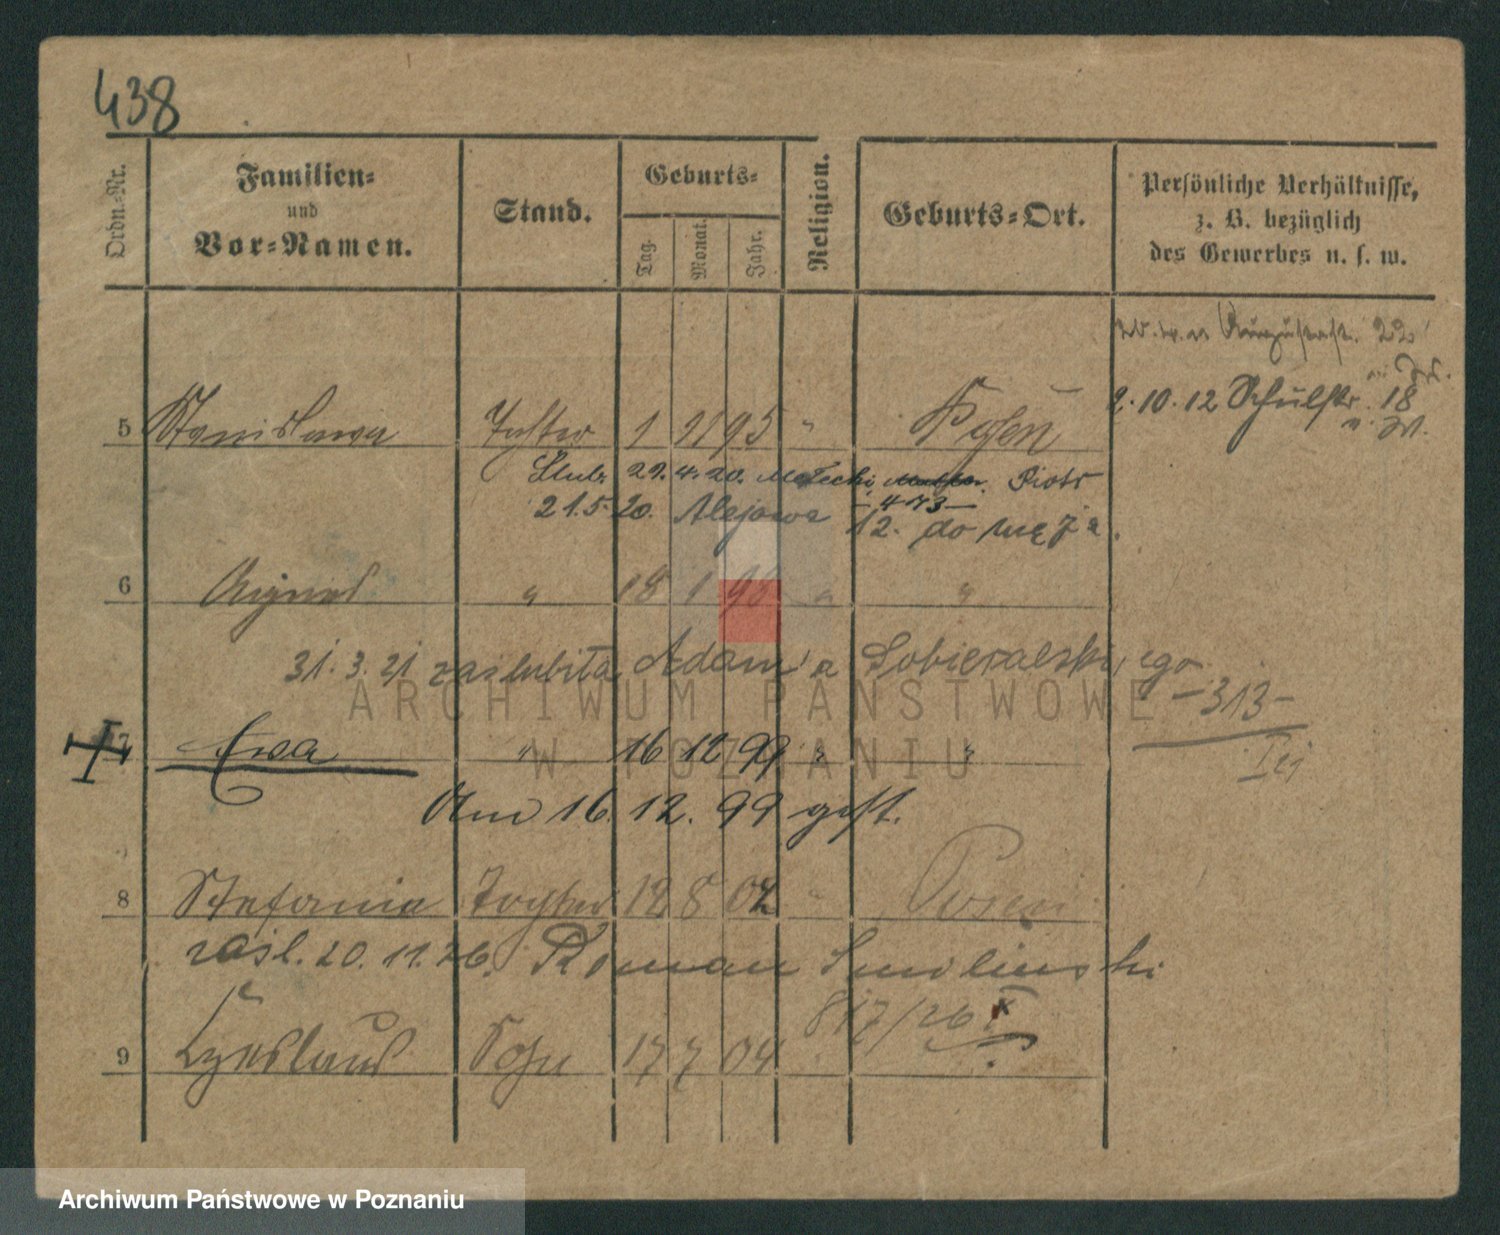 438
Ordn.-Nr.
Familien-
und
Vor-Namen.
Stand.
Geburts-
Tag.
Monat.
Jahr.
Religion.
Geburts-Ort.
Persönliche Verhältnisse,
z. B. bezüglich
des Gewerbes u. s. w.
22
2.10.12 Schulstr. 18
5 Stanislawa Tochter 1 11 95 " Posen
Ślub. 29.4.20. Piotr
21.5.20. Alejowa 12. do męża.
-473-
6 Agnes " 18 1 98 " "
31.3.21 zaślubiła Adam'a Sobieralski'ego
-313-
7 Ewa " 16 12 99 " "
Am 16. 12. 99 gest.
8 Stefania Tochter 12 8 02 " Posen
zaśl. 20.11.26. Roman Smoliński
817/26
9 Czeslaus Sohn 17 7 04
ARCHIWUM PAŃSTWOWE
W POZNANIU
Archiwum Państwowe w Poznaniu